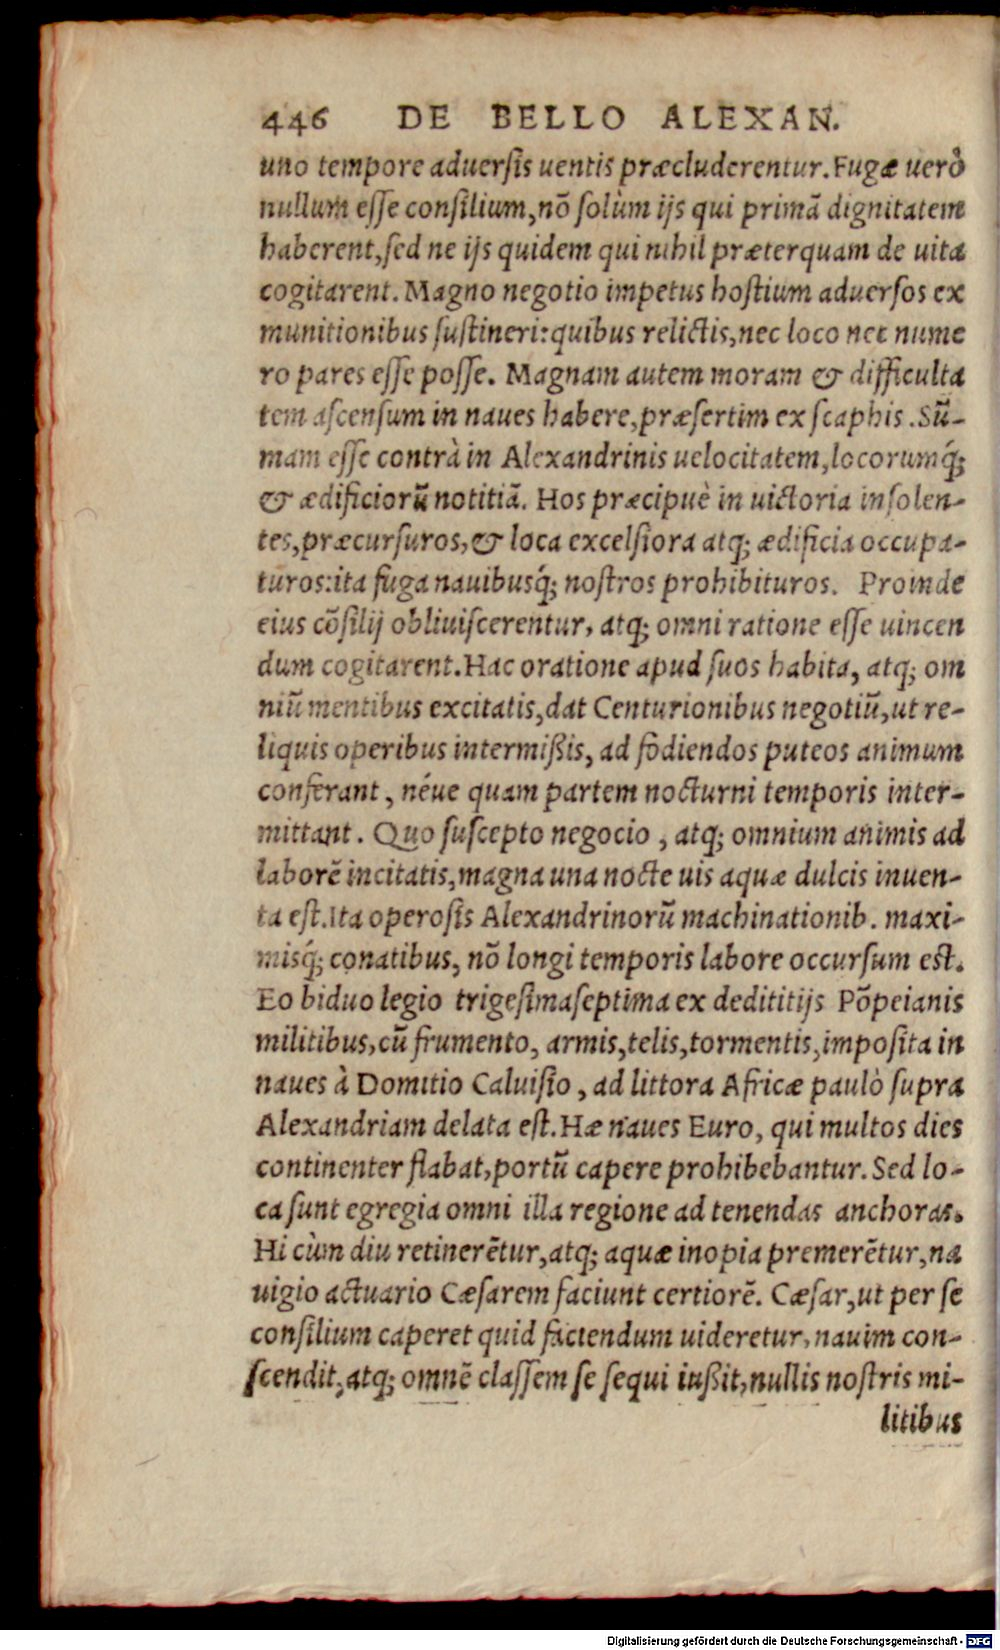 446 DE BELLO ALEXAN.
uno tempore aduersis uentis præcluderentur. Fugæ uerò
nullum esse consilium, nõ solùm ijs qui primã dignitatem
haberent, sed ne ijs quidem qui nihil præterquam de uita
cogitarent. Magno negotio impetus hostium aduersos ex
munitionibus sustineri: quibus relictis, nec loco nec nume
ro pares esse posse. Magnam autem moram & difficulta
tem ascensum in naues habere, præsertim ex scaphis. Sũ-
mam esse contrà in Alexandrinis uelocitatem, locorumq́;
& ædificiorũ notitiã. Hos præcipuè in uictoria insolen-
tes, præcursuros, & loca excelsiora atq; ædificia occupa-
turos: ita fuga nauibusq́; nostros prohibituros. Proinde
eius cõsilij obliuiscerentur, atq; omni ratione esse uincen
dum cogitarent. Hac oratione apud suos habita, atq; om
niũ mentibus excitatis, dat Centurionibus negotiũ, ut re-
liquis operibus intermißis, ad fodiendos puteos animum
conferant, néue quam partem nocturni temporis inter-
mittant. Quo suscepto negocio, atq; omnium animis ad
laborẽ incitatis, magna una nocte uis aquæ dulcis inuen-
ta est. Ita operosis Alexandrinorũ machinationib. maxi-
misq́; conatibus, nõ longi temporis labore occursum est.
Eo biduo legio trigesimaseptima ex dedititijs Põpeianis
militibus, cũ frumento, armis, telis, tormentis, imposita in
naues à Domitio Caluisio, ad littora Africæ paulò supra
Alexandriam delata est. Hæ naues Euro, qui multos dies
continenter flabat, portũ capere prohibebantur. Sed lo-
ca sunt egregia omni illa regione ad tenendas anchoras.
Hi cùm diu retinerẽtur, atq; aquæ inopia premerẽtur, na
uigio actuario Cæsarem faciunt certiorẽ. Cæsar, ut per se
consilium caperet quid faciendum uideretur, nauim con-
scendit, atq; omnẽ classem se sequi iußit, nullis nostris mi-
litibus
Digitalisierung gefördert durch die Deutsche Forschungsgemeinschaft - DFG